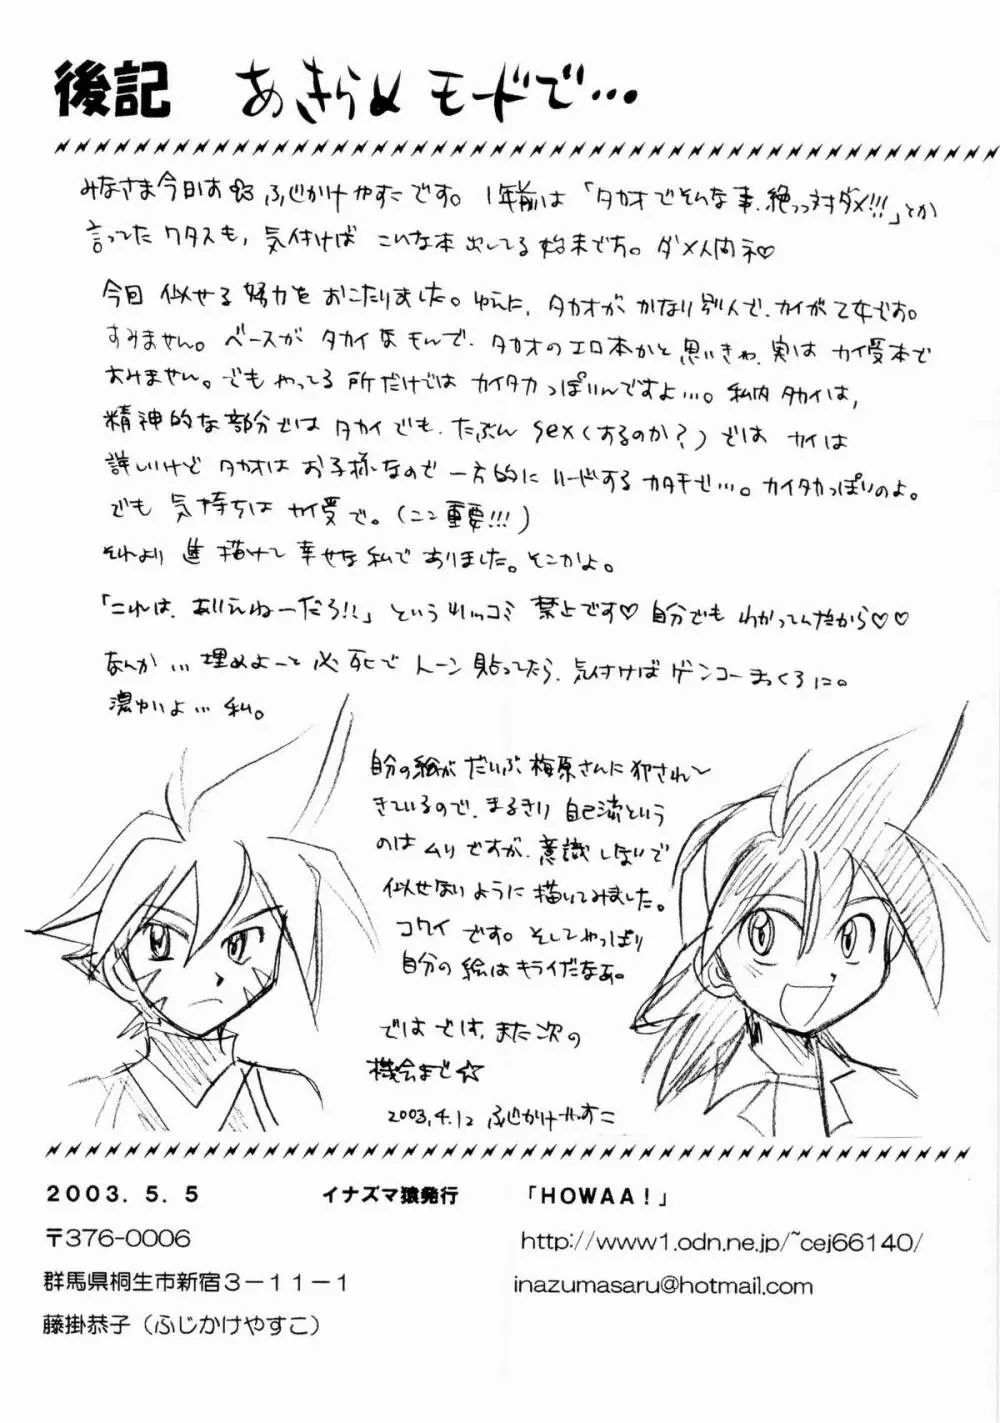 後記 あきらめモードで…
みなさま今日わ ふじかけやすこです。1年前は「タカオでそんな事、絶っっ対ダメ!!!」とか
言ってたワタスも、気付けば こんな本出してる始末です。ダメ人間ネ♡
今回 似せる努力をおこたりました。ゆえに、タカオが かなり別人で、カイが乙女です。
すみません。ベースが タカイなモんで、タカオのエロ本かと思いきや、実は カイ受本で
すみません。でも やってる所だけでは カイタカっぽいんですよ…。私内 タカイは、
精神的な部分では タカイでも、たぶん sex(するのか?)では カイは
詳しいけど タカオは お子様なので 一方的に リードする カタチで…。カイタカっぽいのよ。
でも 気持ちは カイ受で。(ココ 重要!!!)
それより 進 描けて 幸せな 私で ありました。そこかよ。
「これは、ありえねーだろ!!」という ツッコミ 禁止です♡ 自分でも わかってんだから♡♡
なんか… 埋めよーと 必死で トーン 貼ってたら、気付けば ゲンコー まっくろに。
濃ゆいよ… 私。
自分の絵が だいぶ 梅原さんに 犯されて
きているので、まるきり 自己流という
のは ムリですが、意識しないで
似せないように 描いてみました。
コワイ です。そして やっぱり
自分の 絵は キライだなあ。
では では、また 次の
機会まで☆
2003.4.12 ふじかけやすこ
2003.5.5 イナズマ猿発行 「HOWAA!」
〒376-0006 http://www1.odn.ne.jp/~cej66140/
群馬県桐生市新宿3-11-1 inazumasaru@hotmail.com
藤掛恭子(ふじかけやすこ)